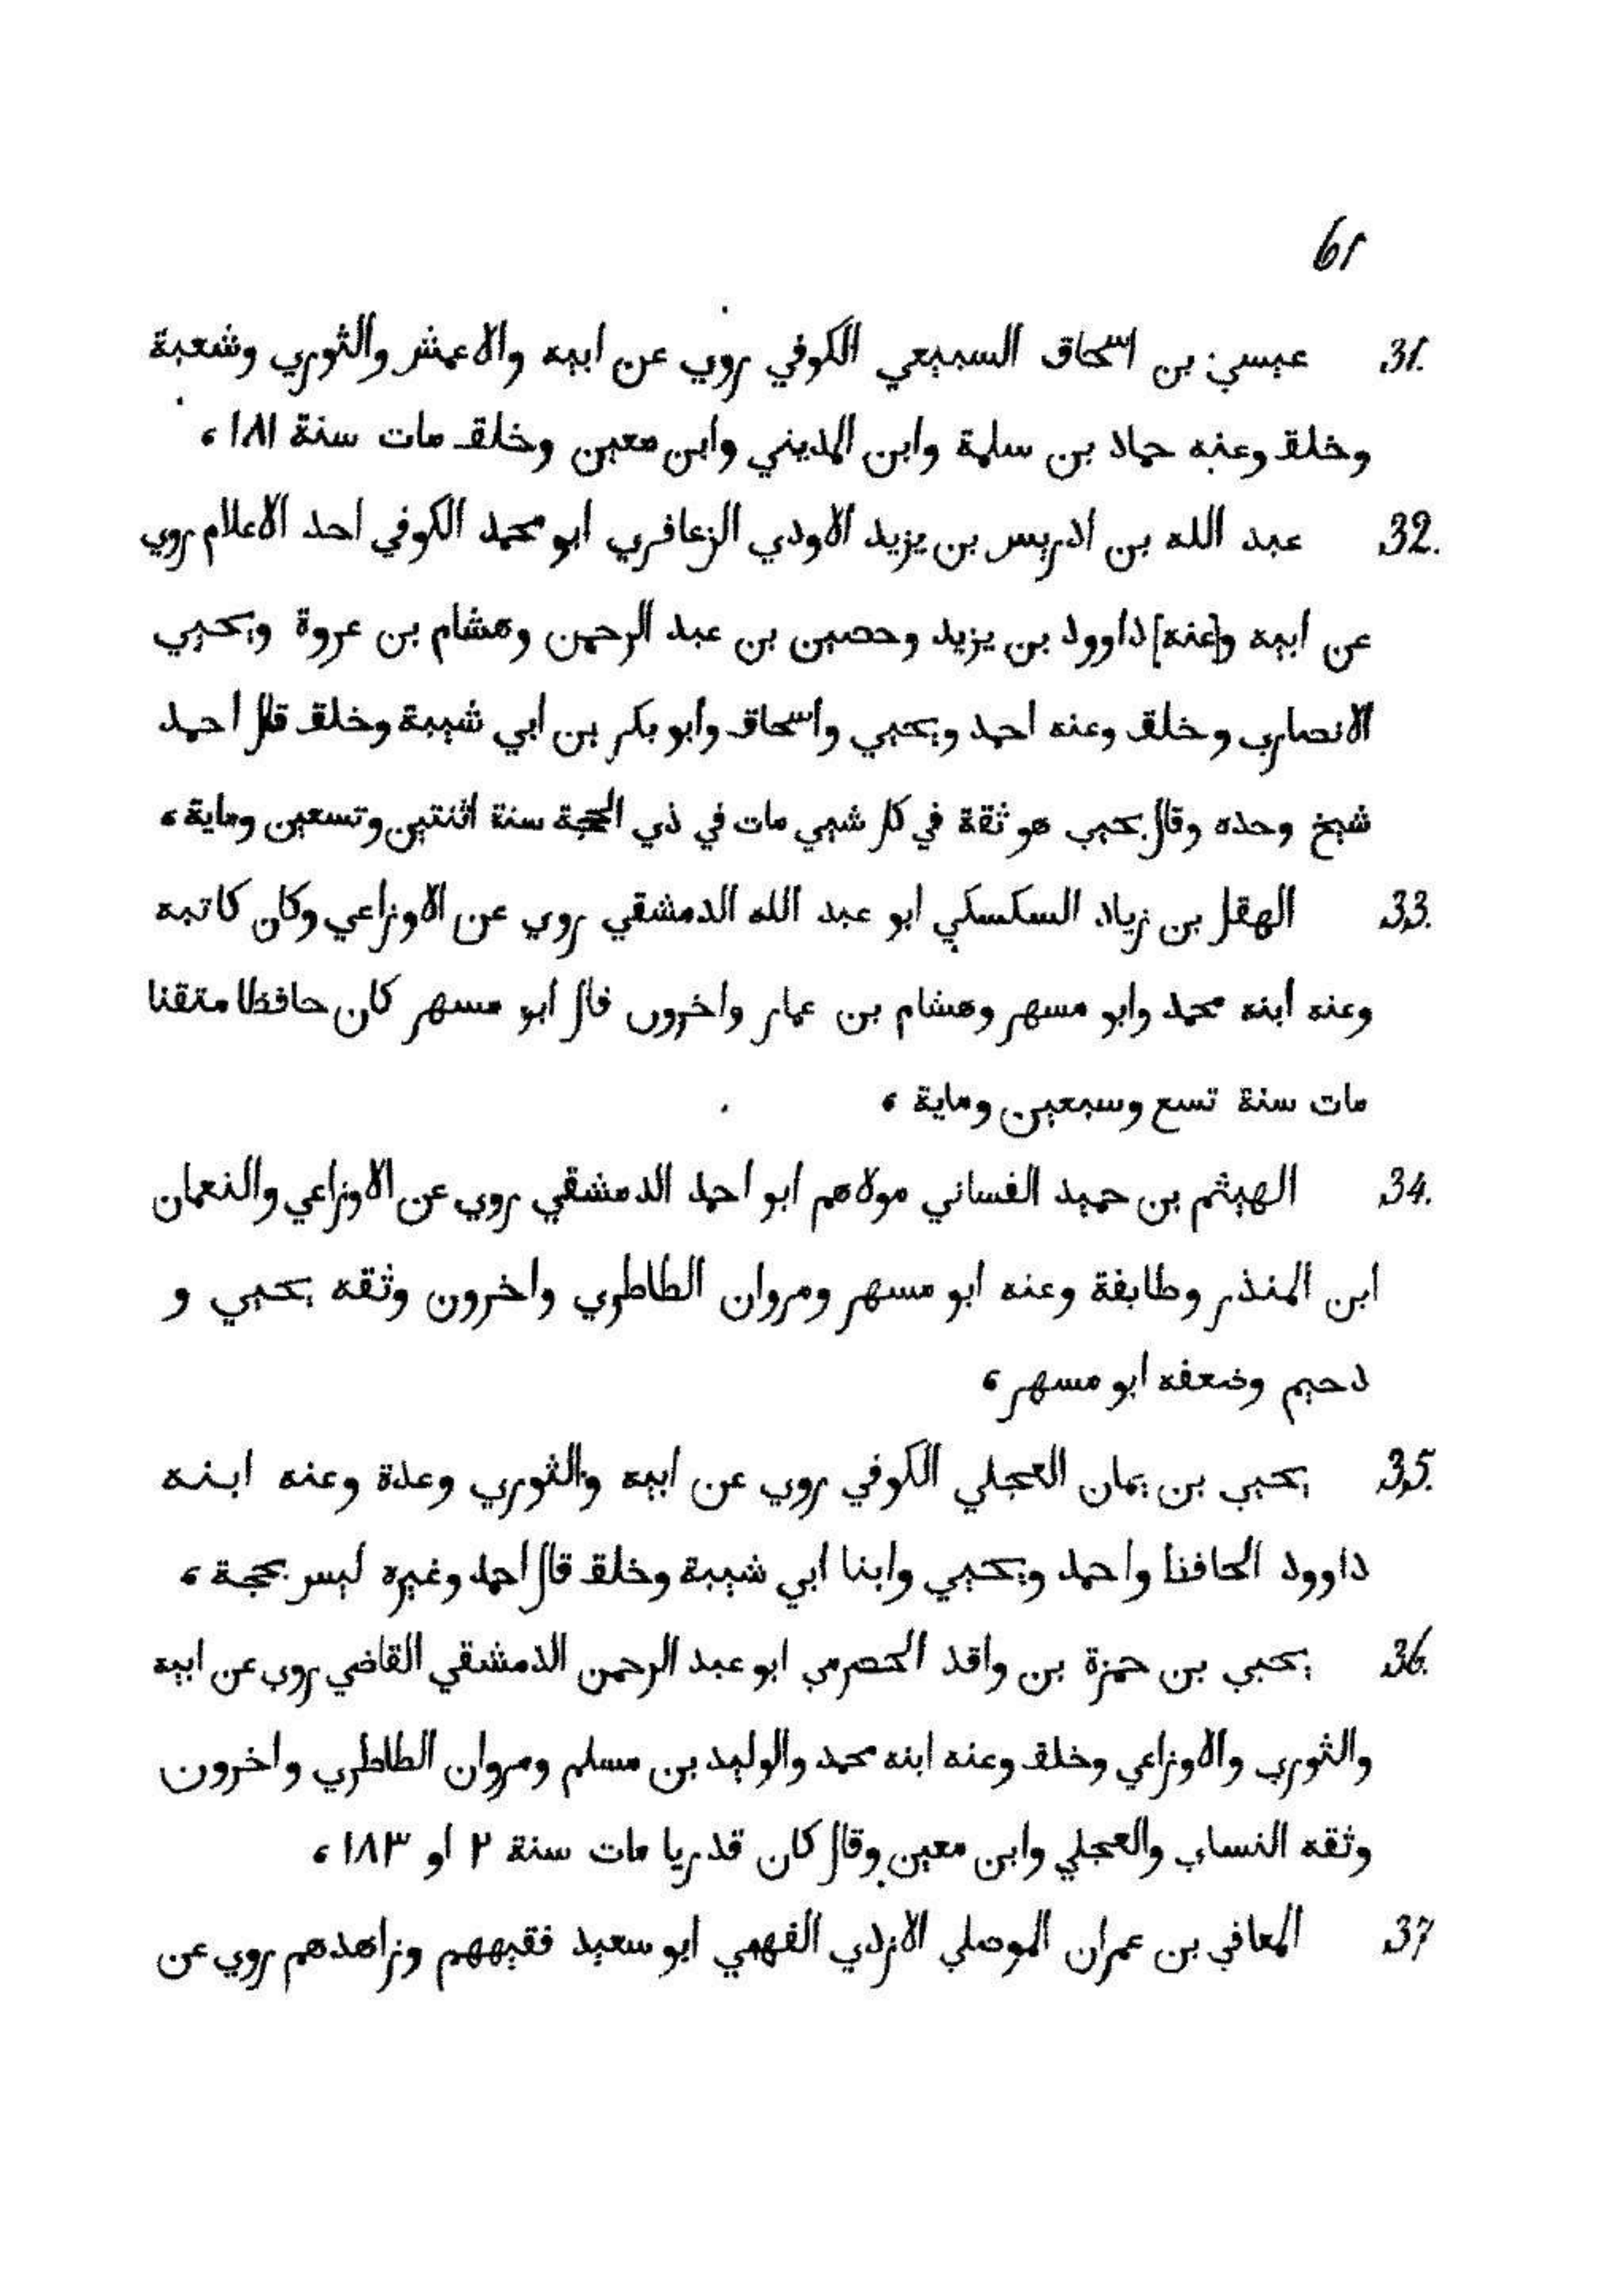 61
31. عيسي بن اسحاق السبيعي الكوفي روي عن ابيه والاعمش والثوري وشعبة
وخلق وعنه حماد بن سلمة وابن المديني وابن معين وخلق مات سنة ١٨١،
32. عبد الله بن ادريس بن يزيد الاودي الزعافري ابو محمد الكوفي احد الاعلام روي
عن ابيه و[عنه] داوود بن يزيد وحصين بن عبد الرحمن وهشام بن عروة ويحيي
الانصاري وخلق وعنه احمد ويحيي واسحاق وابو بكر بن ابي شيبة وخلق قال احمد
شيخ وحده وقال يحيي هو ثقة في كل شيي مات في ذي الحجة سنة اثنتين وتسعين وماية،
33. الهقل بن زياد السكسكي ابو عبد الله الدمشقي روي عن الاوزاعي وكان كاتبه
وعنه ابنه محمد وابو مسهر وهشام بن عمار واخرون قال ابو مسهر كان حافظا متقنا
مات سنة تسع وسبعين وماية،
34. الهيثم بن حميد الغساني مولاهم ابو احمد الدمشقي روي عن الاوزاعي والنعمان
ابن المنذر وطايفة وعنه ابو مسهر ومروان الطاطري واخرون وثقه يحيي و
دحيم وضعفه ابو مسهر،
35. يحيي بن يمان العجلي الكوفي روي عن ابيه والثوري وعدة وعنه ابنه
داوود الحافظ واحمد ويحيي وابنا ابي شيبة وخلق قال احمد وغيره ليس بحجة،
36. يحيي بن حمزة بن واقد الحصرمي ابو عبد الرحمن الدمشقي القاضي روي عن ابيه
والثوري والاوزاعي وخلق وعنه ابنه محمد والوليد بن مسلم ومروان الطاطري واخرون
وثقه النساي والعجلي وابن معين وقال كان قدريا مات سنة ٢ او ١٨٣،
37 المعافي بن عمران الموصلي الازدي الفهمي ابو سعيد فقيههم وزاهدهم روي عن